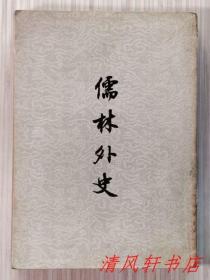 儒林外史
清风轩书店